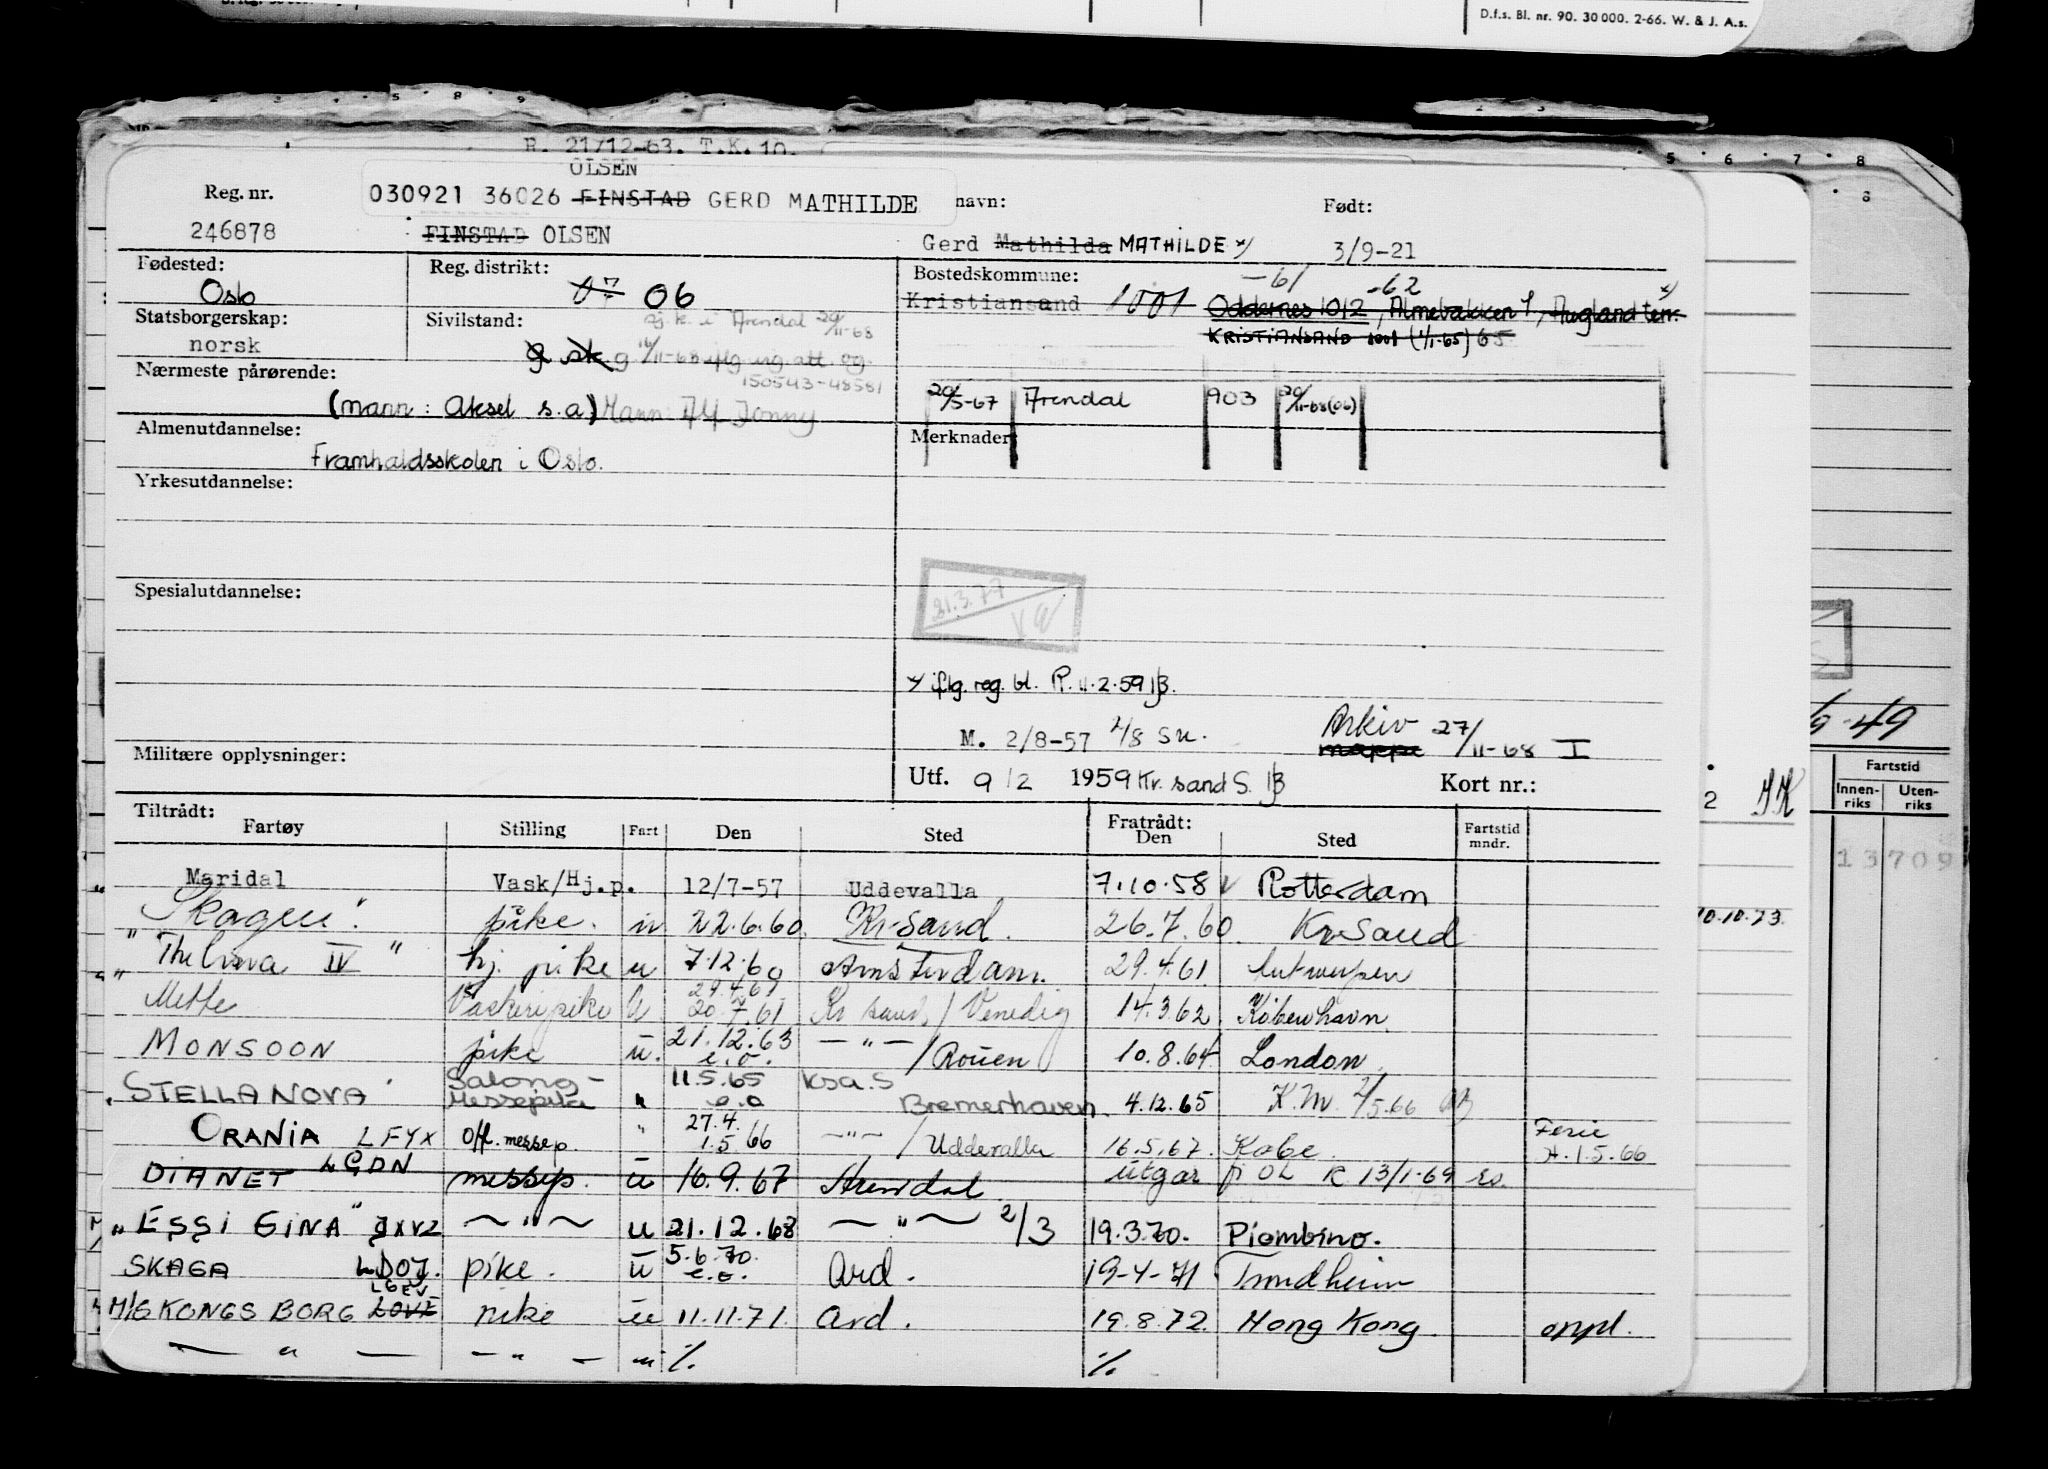 D.f.s. Bl. nr. 90. 30 000. 2-66. W. & J. A.s.
R. 21/12-63. T.K.10.
OLSEN
Reg. nr. 030921 36026 FINSTAD GERD MATHILDE navn: Født:
246878 FINSTAD OLSEN Gerd Mathilda MATHILDE x/ 3/9-21
Fødested: Reg. distrikt: Bostedskommune: -61 -62
Oslo 07 06 Kristiansand 1001 Oddernes 1012, Almebakken 9, Augland terr.
Statsborgerskap: Sivilstand: KRISTIANSAND 1001 (1/1-65) 65
norsk g sk g
150543-48581
Nærmeste pårørende:
(mann: Aksel s.a) Mann: Alf Jonny
20/5-67 Arendal 903 20/11-68(06)
Almenutdannelse: Merknader
Framhaldsskolen i Oslo.
Yrkesutdannelse:
Spesialutdannelse:
21.3.77
x/ iflg. reg. bl. R. 11.2.59
M. 2/8-57 2/8 Su. Arkiv 27/11-68 I
mappe
Militære opplysninger:
Utf. 9/2 1959 Kr. sand S. Kort nr.:
Tiltrådt: Fratrådt:
Fartøy Stilling Fart Den Sted Den Sted Fartstid mndr.
Maridal Vask/Hj.p. 12/7-57 Uddevalla 7.10.58 Rotterdam
"Skagen". pike. in 22.6.60. Kr-sand. 26.7.60. Kr Sand
"Thelma IV" hj. pike u 7.12.60 Amsterdam. 29.4.61. Antwerpen
Mette Vaskeripike U 20.7.61 Kr sand / Venedig 14.3.62 København
MONSOON pike u. 21.12.63 e.o. — " — / Rouen 10.8.64 London.
STELLA NOVA Salong- Messepike " 11.5.65 e.o KSa. S Bremerhaven. 4.12.65 K.M. 2/5.66
ORANIA LFYX Off. messep. " 27.4. 1.5.66 — " — / Uddevalla 16.5.67. Kobe. Ferie t. 1.5.66
DIANET LGDN messep. u 16.9.67 Arendal utgår fi OL R 13/1-69
"ESSI GINA" JXVZ — " — u 21.12.68 — " — 2/3 19.3.70. Piombino.
SKAGA LDOJ. pike. u 5.6.70. e.o. Ard. 19-4-71 Trondheim
M/S KONGSBORG LOVE LGEV pike u 11.11.71. Ard. 19.8.72. Hong Kong. oppl.
— " — — " — " ./. ./.
6-49
Fartstid
Innen-riks Uten-riks
2
13709
10.10.73.